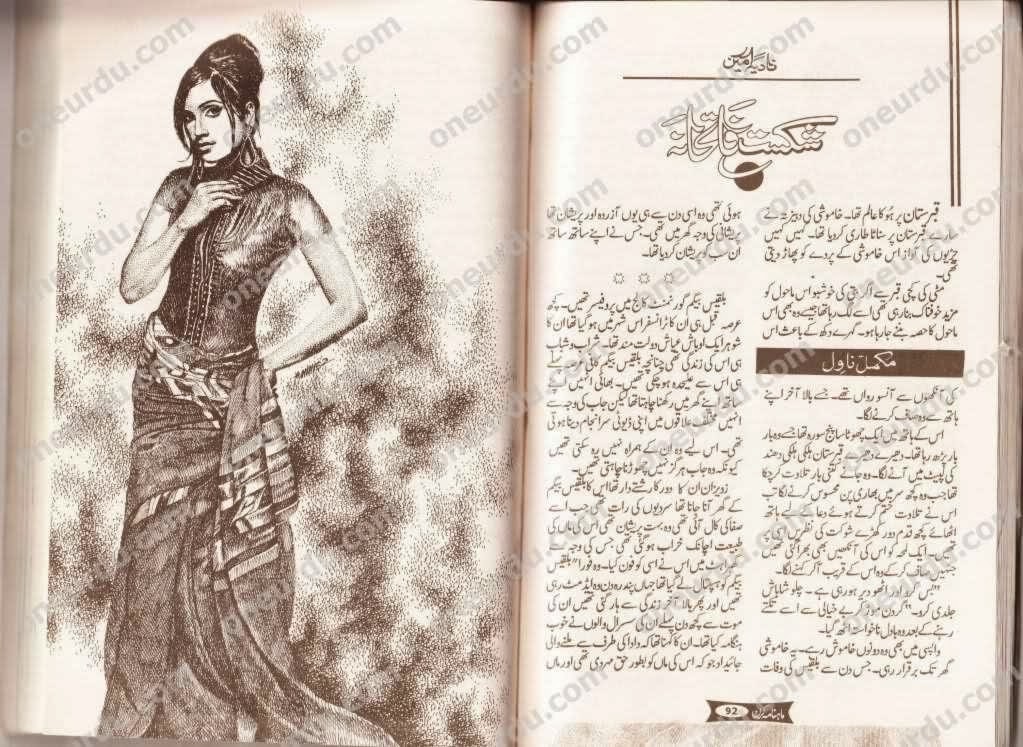 نادیہ امین
شکست فاتحانہ
قبرستان پر ہُو کا عالم تھا۔ خاموشی کی دبیز تہ نے
سارے قبرستان پر سناٹا طاری کر دیا تھا۔ کہیں کہیں
چڑیوں کی آواز اس خاموشی کے پردے کو پھاڑ دیتی
تھی۔
مٹی کی کچی قبر سے اگربتی کی خوشبو اس ماحول کو
مزید خوفناک بنا رہی تھی اسے لگ رہا تھا جیسے وہ بھی اس
ماحول کا حصہ بنتے جا رہا ہو۔ گہرے دکھ کے باعث اس
مکمل ناول
کی آنکھوں سے آنسو رواں تھے۔ جسے بالا آخر اپنے
ہاتھ سے وہ صاف کرنے لگا۔
اس کے ہاتھ میں ایک چھوٹا سا پنج سورہ تھا جسے وہ بار
بار پڑھ رہا تھا۔ دھیرے دھیرے قبرستان ہلکی ہلکی دھند
کی لپیٹ میں آنے لگا۔ وہ جانے کتنی بار تلاوت کر چکا
تھا جب وہ کچھ سر میں بھاری پن محسوس کرنے لگا تب
اس نے تلاوت ختم کرتے ہوئے دعا کے لیے ہاتھ
اٹھائے کچھ قدم دور کھڑے شوکت کی نظریں اسی پر
تھیں۔ ایک لمحہ کو اس کی آنکھیں بھی بھر آئی تھیں
جنہیں صاف کر کے وہ اس کے قریب آ کر کہنے لگا۔
"بس کرو اور اٹھو دیر ہو رہی ہے۔ چلو شاباش
جلدی کرو۔" گردن موڑ کر بے خیالی سے اسے تکتے
رہنے کے بعد وہ بادل ناخواستہ اٹھ گیا۔
واپسی میں بھی وہ دونوں خاموش رہے۔ یہ خاموشی
گھر تک برقرار رہی۔ جس دن سے بلقیس کی وفات
ہوئی تھی وہ اسی دن سے ہی یوں آزردہ اور پریشان تھا
پریشانی کی وجہ گھر میں تھی۔ جس نے اپنے ساتھ ساتھ
ان سب کو پریشان کر دیا تھا۔
☼ ☼ ☼
بلقیس بیگم گورنمنٹ کالج میں پروفیسر تھیں۔ کچھ
عرصہ قبل ہی ان کا ٹرانسفر اس شہر میں ہو گیا تھا ان کا
شوہر ایک اوباش عیاش دولت مند تھا۔ شراب و شباب
ہی اس کی زندگی تھی چنانچہ بلقیس بیگم کئی سال پہلے
ہی اس سے علیحدہ ہو چکی تھیں۔ بھائی انہیں اپنے
ساتھ اپنے گھر میں رکھنا چاہتا تھا لیکن جاب کی وجہ سے
انہیں مختلف علاقوں میں اپنی ڈیوٹی سرانجام دینا ہوتی
تھی۔ اس لیے وہ ان کے ہمراہ نہیں رہ سکتی تھیں
کیونکہ وہ جاب ہرگز نہیں چھوڑنا چاہتی تھیں۔
زوہیز ان کا دور کا رشتے دار تھا اس کا بلقیس بیگم
کے گھر آنا جانا تھا سردیوں کی رات تھی جب اسے
صفا کی کال آئی تھی وہ بہت پریشان تھی اس کی ماں کی
طبیعت اچانک خراب ہو گئی تھی جس کی وجہ سے
گھبراہٹ میں اس نے اسی کو فون کیا۔ وہ فورا" بلقیس
بیگم کو ہسپتال لے گیا تھا جہاں پندرہ دن وہ ایڈمٹ رہی
تھیں اور پھر بالا آخر زندگی سے ہار گئی تھیں ان کی
موت سے کچھ دن پہلے ان کی سسرال والوں نے خوب
ہنگامہ کیا تھا۔ ان کا کہنا تھا کہ دادا کی طرف سے ملنے والی
جائیداد جو کہ اس کی ماں کو بطور حق مہر دی تھی اور ماں
ماہنامہ کرن 92
oneurdu.com